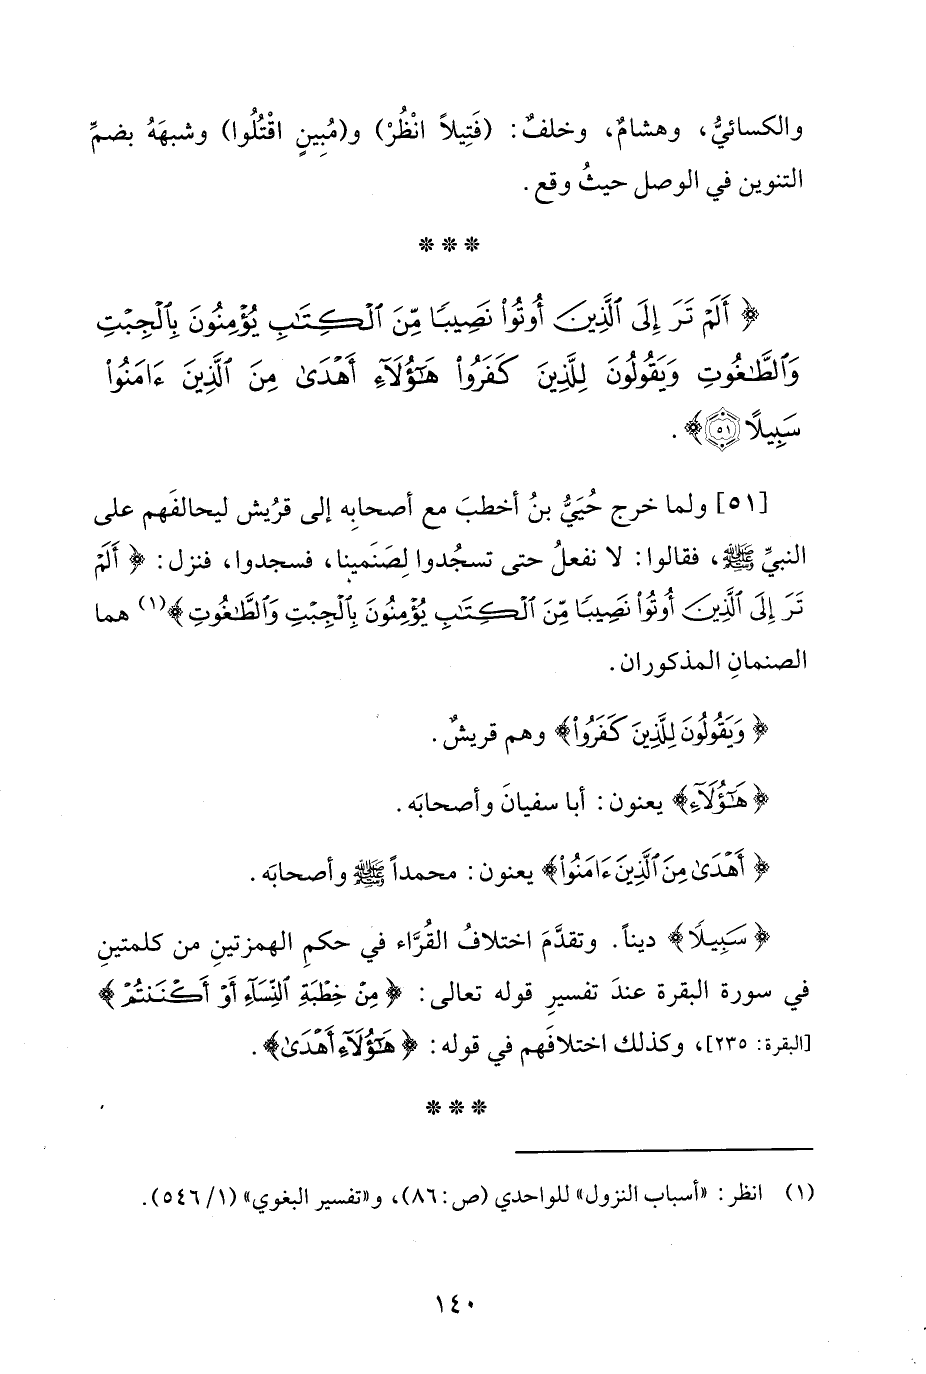 والكسائيُّ، وهشامٌ، وخلفٌ: (فَتِيلاً انْظُرْ) و(مُبِينٍ اقْتُلُوا) وشبهَهُ بضمِّ
التنوين في الوصل حيثُ وقع.
***
﴿ أَلَمْ تَرَ إِلَى ٱلَّذِينَ أُوتُوا۟ نَصِيبًا مِّنَ ٱلْكِتَٰبِ يُؤْمِنُونَ بِٱلْجِبْتِ
وَٱلطَّٰغُوتِ وَيَقُولُونَ لِلَّذِينَ كَفَرُوا۟ هَٰٓؤُلَآءِ أَهْدَىٰ مِنَ ٱلَّذِينَ ءَامَنُوا۟
سَبِيلًا ٥١﴾.
[٥١] ولما خرج حُيَيُّ بنُ أخطبَ مع أصحابِه إلى قرُيش ليحالفَهم على
النبيِّ ﷺ، فقالوا: لا نفعلُ حتى تسجُدوا لِصَنَمينا، فسجدوا، فنزل: ﴿ أَلَمْ
تَرَ إِلَى ٱلَّذِينَ أُوتُوا۟ نَصِيبًا مِّنَ ٱلْكِتَٰبِ يُؤْمِنُونَ بِٱلْجِبْتِ وَٱلطَّٰغُوتِ ﴾(١) هما
الصنمانِ المذكوران.
﴿ وَيَقُولُونَ لِلَّذِينَ كَفَرُوا۟﴾ وهم قريشٌ.
﴿ هَٰٓؤُلَآءِ﴾ يعنون: أبا سفيانَ وأصحابَه.
﴿ أَهْدَىٰ مِنَ ٱلَّذِينَ ءَامَنُوا۟﴾ يعنون: محمداً ﷺ وأصحابَه.
﴿ سَبِيلًا﴾ ديناً. وتقدَّمَ اختلافُ القُرَّاء في حكمِ الهمزتينِ من كلمتينِ
في سورة البقرة عندَ تفسيرِ قوله تعالى: ﴿ مِنْ خِطْبَةِ ٱلنِّسَآءِ أَوْ أَكْنَنتُمْ ﴾
[البقرة: ٢٣٥]، وكذلك اختلافَهم في قوله: ﴿ هَٰٓؤُلَآءِ أَهْدَىٰ﴾.
***
(١) انظر: «أسباب النزول» للواحدي (ص: ٨٦)، و«تفسير البغوي» (١/ ٥٤٦).
١٤٠